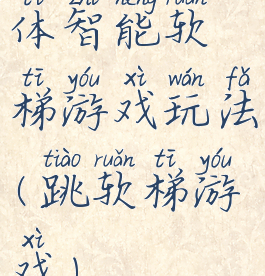 tǐ zhì néng ruǎn
体智能软
tī yóu xì wán fǎ
梯游戏玩法
tiào ruǎn tī yóu
(跳软梯游
xì
戏)